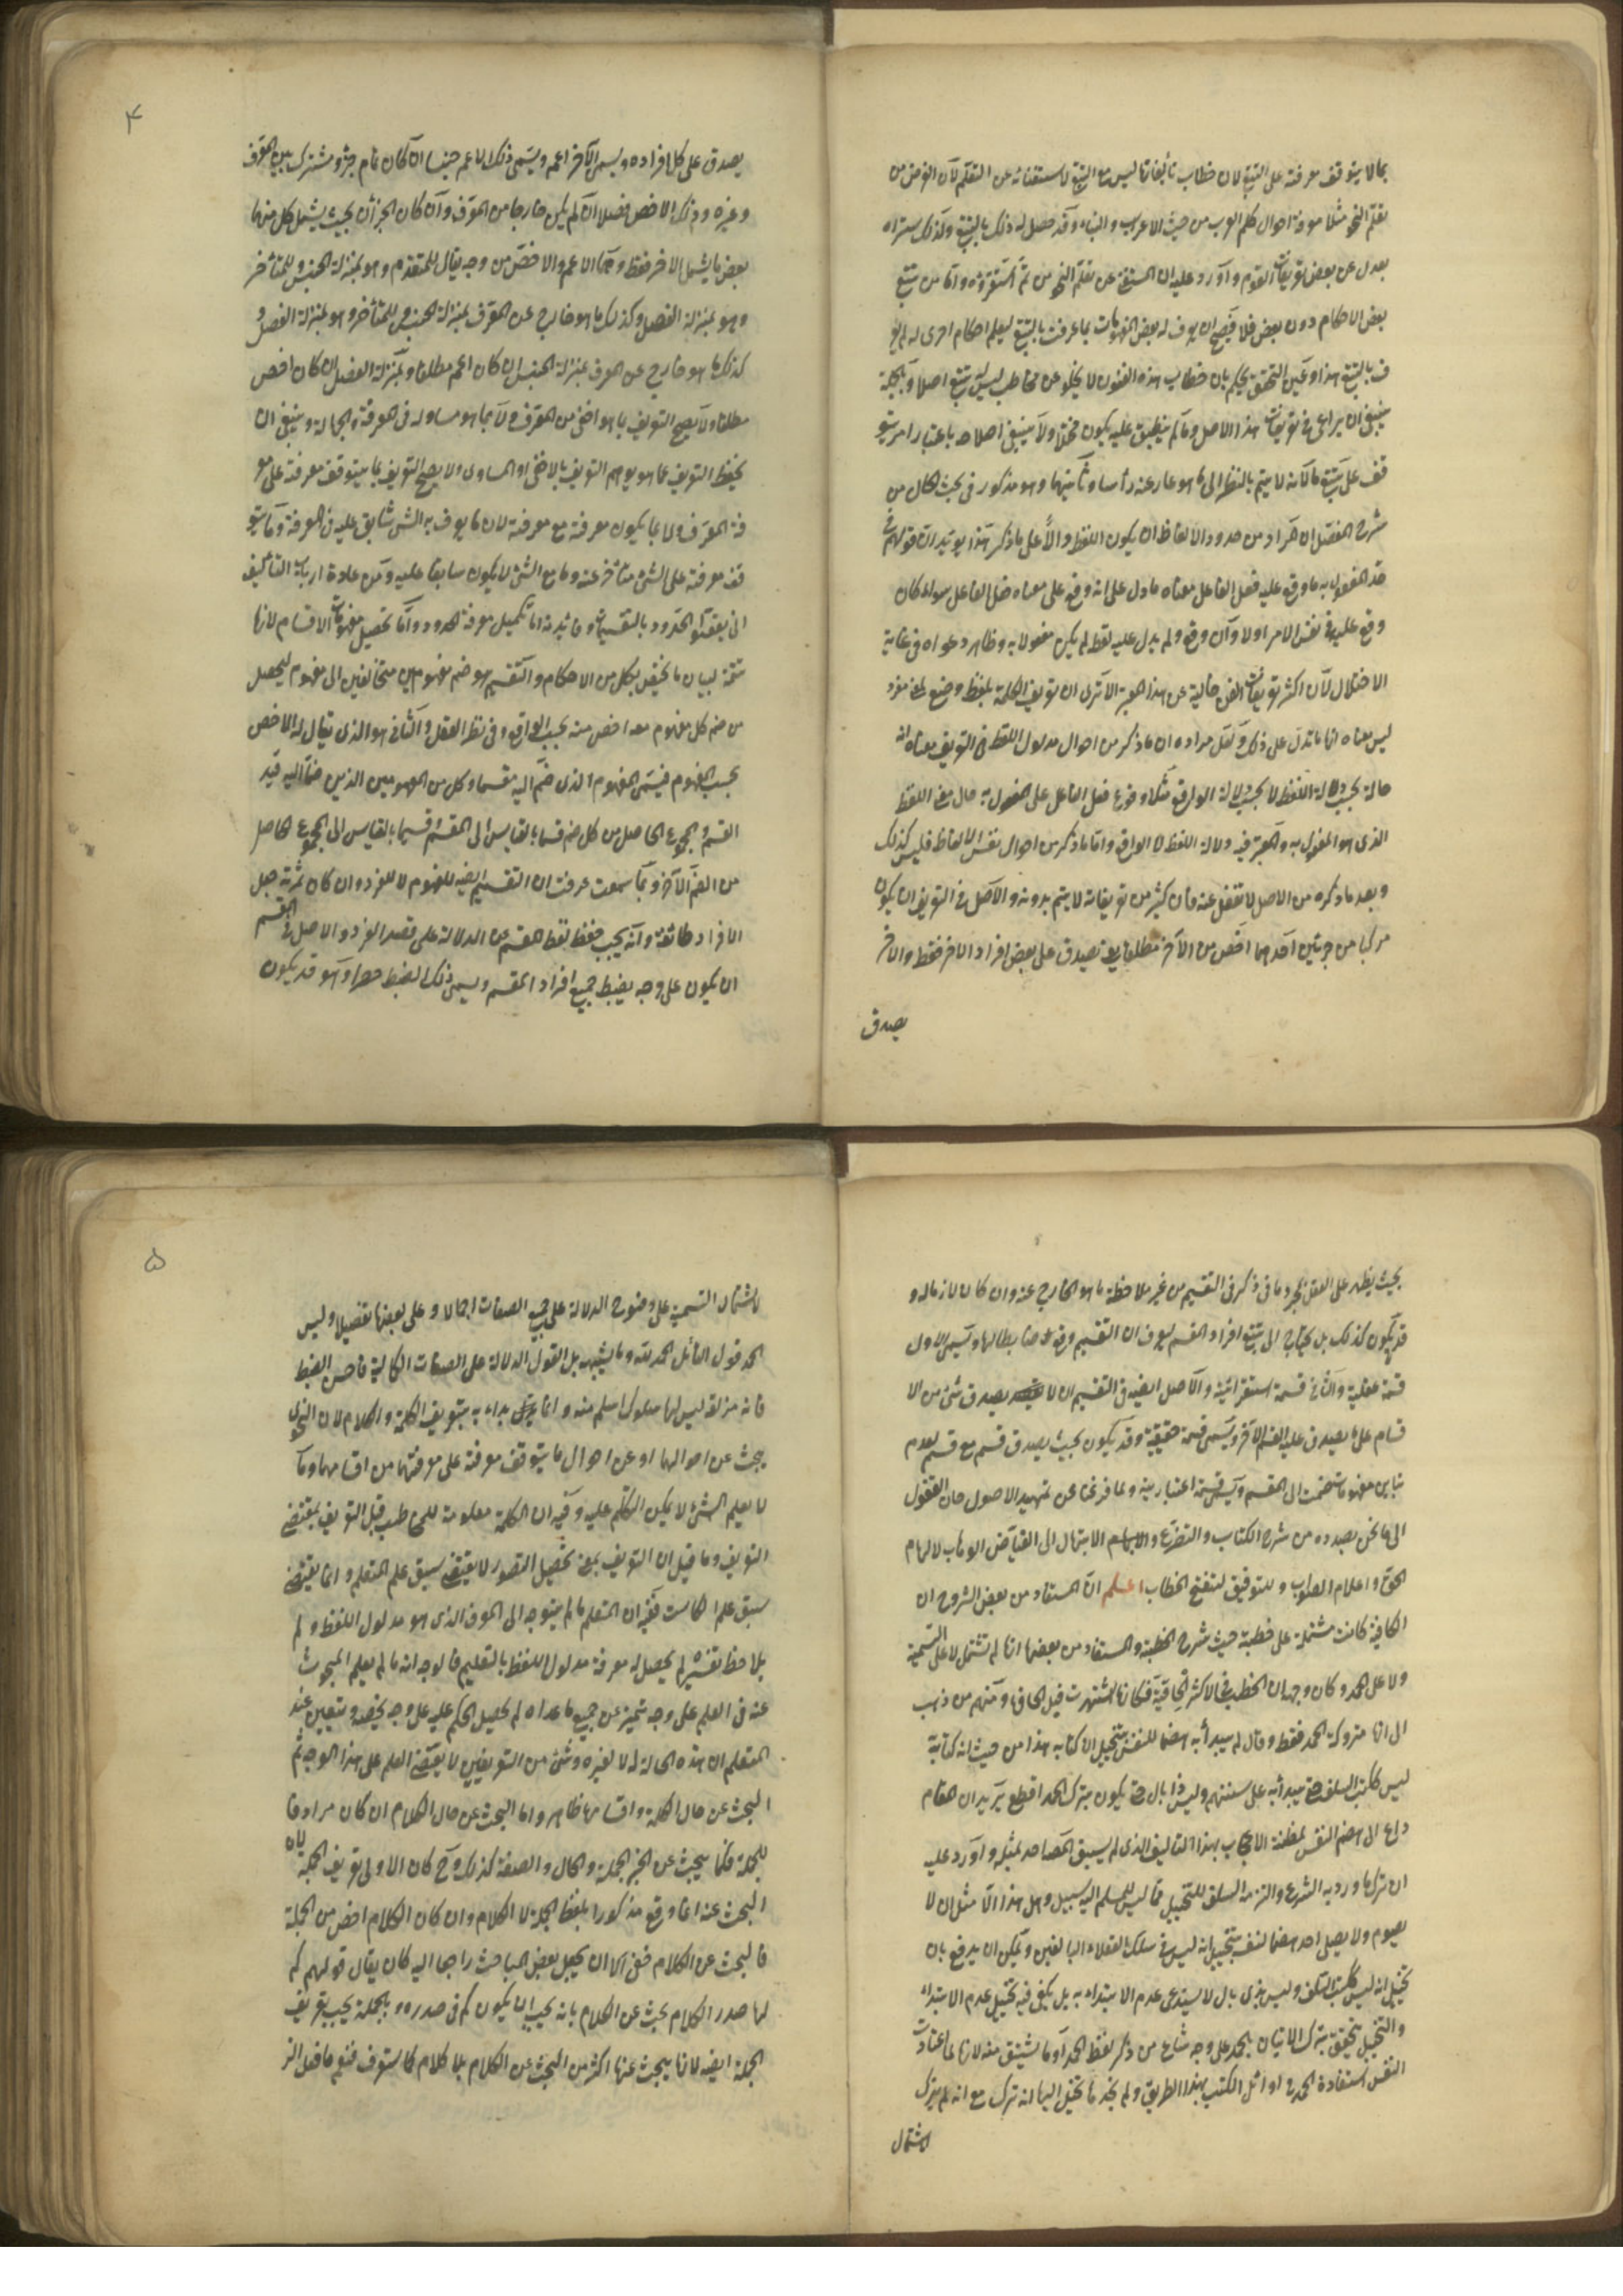 بما لا يتوقف معرفته على التتبع لان خطاب تأليفاتنا ليس مع المتتبع لاستغنائه عن التعلم لان الغرض من
تعلم النحو مثلا معرفة احوال كلم العرب من حيث الاعراب والبناء وقد حصل له ذلك بالتتبع وكذلك ستراه
يعدل عن بعض تعريفات القوم وأورد عليه ان المستغنى عن تعلم النحو من تم استقراؤه واما من تتبع
بعض الاحكام دون بعض فلا فيصح ان يعرف له بعض المفهومات بما عرف بالتتبع ليعلم احكام اخرى له لم
ف بالتتبع هذا وعين التحقق يحكم بان خطاب هذه الفنون لا يخلو عن مخاطب ليس له تتبع اصلا وبالجملة
ينبغى ان يراعى فى تعريفات هذا الاصل وما لم ينطبق عليه يكون مختلا ولا ينبغى اصلاحه باعتبار امر يتو
قف على تتبع ما لانه لا يتم بالنظر الى ما هو عار عنه رأسا وثانيهما وهو مذكور فى بحث الحال من
شرح المفصل ان المراد من حدود الالفاظ ان يكون اللفظ دالا على ما ذكر هذا يؤيد ان قولهم فى
حد المفعول به ما وقع عليه فعل الفاعل معناه ما دل على انه وقع على معناه فعل الفاعل سواء كان
وقع عليه فى نفس الامر اولا وان وقع ولم يدل عليه لفظ لم يكن مفعولا به وظاهر دعواه فى غاية
الاختلال لان اكثر تعريفات الفن خالية عن هذا المعنى الا ترى ان تعريف الكلمة بلفظ وضع لمعنى مفرد
ليس معناه انها ما تدل على ذلك ولعل مراده ان ما ذكر من احوال مدلول اللفظ فى التعريف معناه انه
حالة بحسب دلالة اللفظ لا بحسب دلالة الواقع مثلا وقوع فعل الفاعل على المفعول به حال معنى اللفظ
الذى هو المفعول به والمعتبر فيه دلالة اللفظ لا الواقع واما ما ذكر من احوال نفس الالفاظ فليس كذلك
وبعد ما ذكره من الاصل لا تغفل عنه فان كثير من تعريفاته لا يتم بدونه والاصل فى التعريف ان يكون
مركبا من جزئين احدهما اخص من الآخر مطلقا يعنى تصدق على بعض افراد الاخر فقط والاخر
يصدق
٤
يصدق على كل افراده ويسمى الآخر اعم ويسمى ذلك الاعم جنسا ان كان تمام جزء مشترك بين المعرف
وغيره وذلك الاخص فصلا ان لم يكن خارجا من المعرف وان كان الجزأن بحيث يشمل كل منهما
بعض ما يشمله الاخر فقط وهما الاعم والاخص من وجه يقال للمتقدم وهو بمنزلة الجنس وللمتأخر
وهو بمنزلة الفصل وكذلك ما هو خارج عن المعرف بمنزلة الجنس وللمتأخر وهو بمنزلة الفصل و
كذلك ما هو خارج عن المعرف بمنزلة الجنس ان كان اعم مطلقا وبمنزلة الفصل ان كان اخص
مطلقا ولا يصح التعريف بما هو اخفى من المعرف ولا بما هو مساو له فى المعرفة والجهالة وينبغى ان
يحفظ التعريف عما هو يوهم التعريف بالاخفى او المساوى ولا يصح التعريف بما يتوقف معرفته على معر
فة المعرف ولا بما يكون معرفته مع معرفته لان ما يعرف به الشئ سابق عليه فى المعرفة وما يتو
قف معرفته على الشئ متأخر عنه وما مع الشئ لا يكون سابقا عليه ومن عادة ارباب التأليف
ان يعقبوا الحدود بالتقسيمات وفائدته اما تكميل معرفة المحدود واما تحصيل مفهومات الاقسام لانها
تتمة لبيان ما يختص بكل من الاحكام والتقسيم هو ضم مفهومين متخالفين الى مفهوم ليحصل
من ضم كل مفهوم معه اخص منه بحسب الواقع وفى نظر العقل والثانى هو الذى يقال له الاخص
بحسب المفهوم فيسمى المفهوم الذى ضم اليه مقسما وكل من المفهومين الذين ضما اليه قيد
القسم والمجموع الحاصل من كل ضم قسما بالقياس الى المقسم وقسيما بالقياس الى المجموع الحاصل
من الضم الآخر وبما سمعت عرفت ان التقسيم ايضا للمفهوم لا للفرد وان كان ثمرته جعل
الافراد طائفة وانه يجب حفظ لفظ المقسم عن الدلالة على قصد الفرد والاصل فى التقسيم
ان يكون على وجه يضبط جميع افراد المقسم ويسمى ذلك الضبط حصرا وهو قد يكون
بحيث يظهر على العقل بمجرد ما فى ذكر فى التقسيم من غير ملاحظة ما هو الخارج عنه وان كان لازما له و
قد يكون كذلك بل يحتاج الى تتبع افراد المقسم ليعرف ان التقسيم وقع ضابطا لها ويسمى الاول
قسمة عقلية والثانى قسمة استقرائية والاصل ايضا فى التقسيم ان لا يصدق شئ من الا
قسام على ما يصدق عليه القسم الآخر ويسمى قسمة حقيقية وقد يكون بحيث يصدق قسم مع قسم لعدم
تباين مفهومات ضمت الى المقسم ويسمى قسمة اعتبارية ولما فرغنا عن تمهيد الاصول حان القفول
الى ما نحن بصدده من شرح الكتاب والتضرع والابتهال الى الفياض الوهاب لالهام
الحق واعلام الصواب وللتوفيق لنفتح الخطاب اعلم ان المستفاد من بعض الشروح ان
الكافية كانت مشتملة على خطبة حيث شرح الخطبة والمستفاد من بعضها انها لم تشتمل لا على التسمية
ولا على الحمد وكان وجهه ان الخطب فى الاكثر الحاقية فكانها اشتهرت قبل الحاقها ومنهم من ذهب
الى انها متروكة الحمد فقط وقال لم يبدأ به هضما للنفس بتخييل ان كتابه هذا من حيث انه كتابه
ليس ككتب السلف حتى يبدأ به على سننهم وليس ذا بال حتى يكون بترك الحمد اقطع يريد ان المقام
داع الى هضم النفس لمظنة الاعجاب بهذا التأليف الذى لم يسبق احد بمثله واورد عليه
ان ترك ما ورد به الشرع والتزمه السلف للتخييل مما ليس للمسلم اليه سبيل وهل هذا الا مثل ان لا
يصوم ولا يصلى احد هضما لنفسه بتخييل انه ليس فى سلك العقلاء البالغين ويمكن ان يدفع بان
تخييل انه ليس ككتب السلف وليس بذى بال لا يستدعى عدم الابتداء به بل يكفى فيه تخييل عدم الابتداء
والتخييل يتحقق بترك الاتيان بالحمد على وجه شاع من ذكر لفظ الحمد او ما يشتق منه لانها لما اعتادت
النفس استفادة الحمد فى اوائل الكتب بهذا الطريق ولم يجد ما تخيل اليها انه ترك مع انه لم يترك
لاشتمال
٥
لاشتمال التسمية على وضوح الدلالة على جميع الصفات اجمالا وعلى بعضها تفصيلا وليس
الحمد قول القائل الحمد لله وما يشبهه بل القول الدلالة على الصفات الكمالية فاحسن الضبط
فانه مزلقة ليس لها مسلوك اسلم منه وانما بداء به بتعريف الكلمة والكلام لان النحوى
يبحث عن احوالهما او عن احوال ما يتوقف معرفته على معرفتهما من اقسامهما وما
لا يعلم الشئ لا يمكن التكلم عليه وفيه ان الكلمة معلومة للمخاطب قبل التعريف بمقتضى
التعريف وما قيل ان التعريف بمعنى تحصيل المتصور لا يقتضى سبق علم المتعلم وانما يقتضى
سبق علم ففيه ان المتعلم ما لم يتوجه الى المعرف الذى هو مدلول اللفظ ولم
يلاحظ تفسيره لم يحصل له معرفة مدلول اللفظ بالتعليم فالوجه انه ما لم يعلم المبحوث
عنه فى العلم على وجه تميز عن جميع ما عداه لم يحصل الحكم عليه على وجه يخصه ويتعين عند
المتعلم ان هذه الحالة له لا لغيره وشئ من التعريفين لا يقتضى العلم على هذا الوجه ثم
البحث عن حال الكلمة واقسامها ظاهر واما البحث عن حال الكلام ان كان مرادفا
للجملة فكما يبحث عن الخبر الجملة والحال والصفة كذلك وح كان الاولى تعريف الجملة لان
البحث عنه انما وقع مذكورا بلفظ الجملة لا الكلام وان كان الكلام اخص من الجملة
فالبحث عن الكلام خفى الا ان يجعل بعض المباحث راجعا اليه كان يقال قولهم كم
لها صدر الكلام بحث عن الكلام بانه يجب ان يكون كم فى صدره وبالجملة يجب تعريف
الجملة ايضا لانها يبحث عنها اكثر من البحث عن الكلام بلا كلام كما ستعرف فنعم ما فعل الز